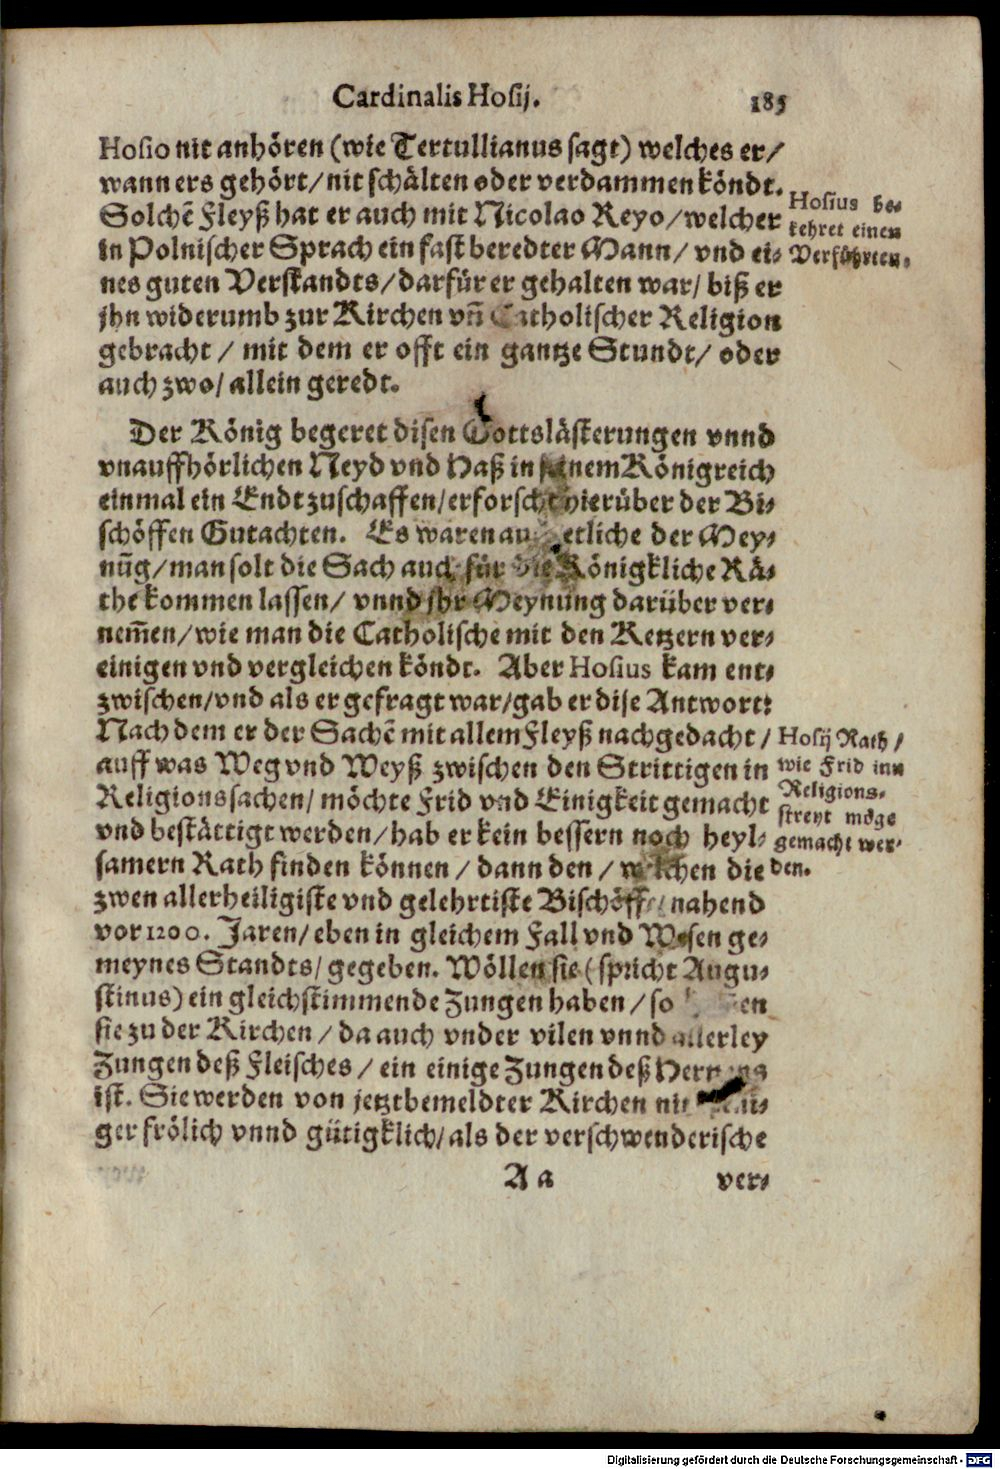 Cardinalis Hosij. 185
Hosio nit anhören (wie Tertullianus sagt) welches er/
wann ers gehört/ nit schälten oder verdammen köndt.
Solchẽ Fleyß hat er auch mit Nicolao Reyo/ welcher
in Polnischer Sprach ein fast beredter Mann/ vnd ei-
nes guten Verstandts/ darfür er gehalten war/ biß er
jhn widerumb zur Kirchen vñ Catholischer Religion
gebracht / mit dem er offt ein gantze Stundt/ oder
auch zwo/ allein geredt.
Hosius be-
kehret einen
Verführten.
Der König begeret disen Gottslästerungen vnnd
vnauffhörlichen Neyd vnd Haß in seinem Königreich
einmal ein Endt zuschaffen/ erforscht hierüber der Bi-
schöffen Gutachten. Es waren auch etliche der Mey-
nũg/ man solt die Sach auch für die Königkliche Rä-
the kommen lassen/ vnnd jhr Meynung darüber ver-
nem̃en/ wie man die Catholische mit den Ketzern ver-
einigen vnd vergleichen köndt. Aber Hosius kam ent-
zwischen/ vnd als er gefragt war/ gab er dise Antwort:
Nach dem er der Sachẽ mit allem Fleyß nachgedacht /
auff was Weg vnd Weyß zwischen den Strittigen in
Religionssachen/ möchte Frid vnd Einigkeit gemacht
vnd bestättigt werden/ hab er kein bessern noch heyl-
samern Rath finden können / dann den / welchen die
zwen allerheiligiste vnd gelehrtiste Bischöff/ nahend
vor 1200. Jaren/ eben in gleichem Fall vnd Wesen ge-
meynes Standts/ gegeben. Wöllen sie (spricht Augu-
stinus) ein gleichstimmende Zungen haben / so
sie zu der Kirchen / da auch vnder vilen vnnd allerley
Zungen deß Fleisches / ein einige Zungen deß Herrens
ist. Sie werden von jetztbemeldter Kirchen nit
ger frölich vnnd gütigklich/ als der verschwenderische
Hosij Rath /
wie Frid inn
Religions-
streyt möge
gemacht wer-
den.
A a ver-
Digitalisierung gefördert durch die Deutsche Forschungsgemeinschaft - DFG